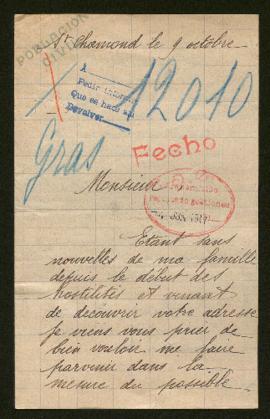 POBLACION
CIVIL
St Chamond le 9 octobre
1
Pedir informe
Que se hace
Devolver
12010
Gras
Fecho
Monsieur
Etant sans
nouvelles de ma famille
depuis le début des
hostilités et venant
de découvrir votre adresse
je viens vous prier de
bien vouloir me faire
parvenir dans la
mesure du possible